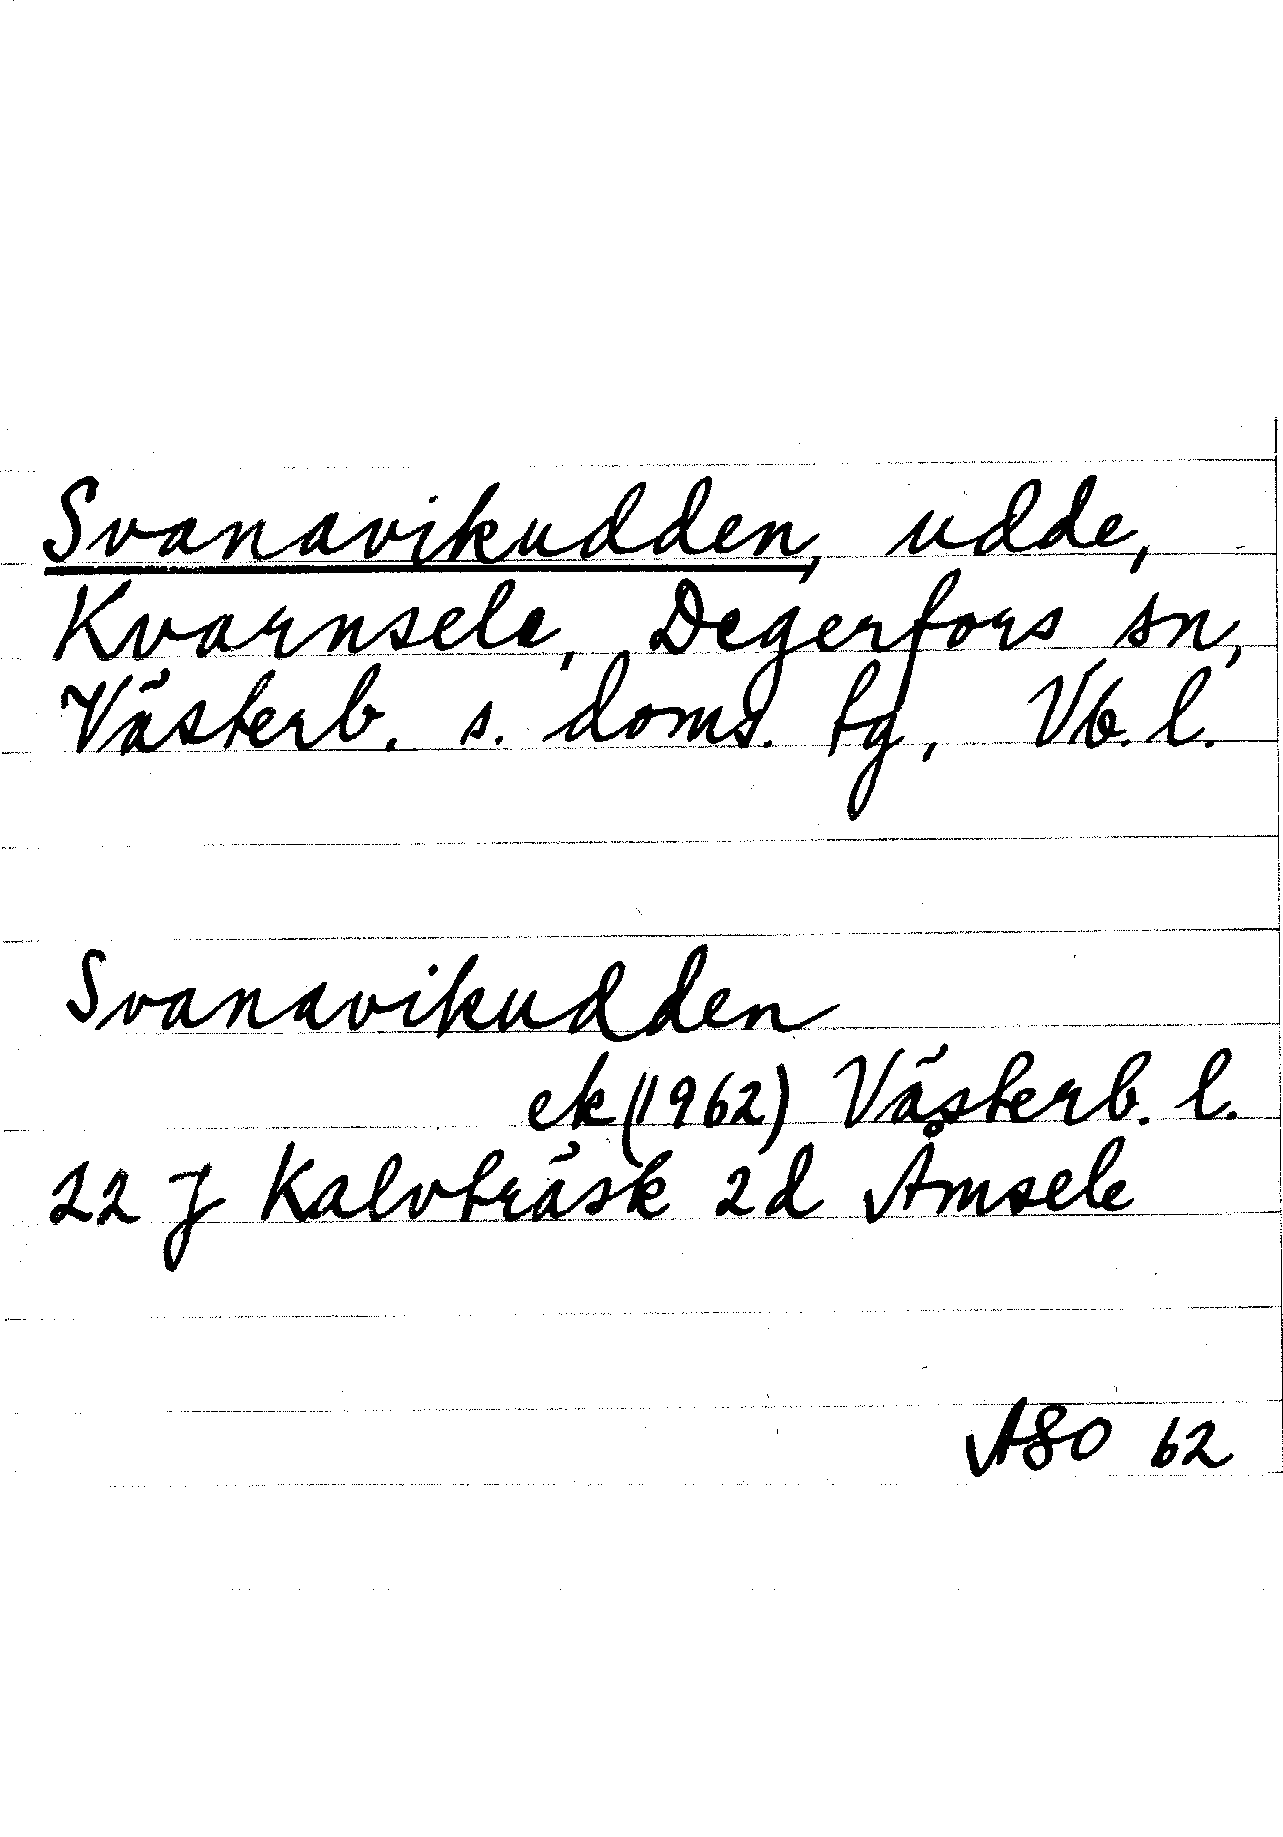 Svanavikudden, udde,
Kvarnsele, Degerfors sn,
Västerb. s. doms. tg, Vb. l.
Svanavikudden
ek (1962) Västerb. l.
22 J Kalvträsk 2d Åmsele
ASO 62